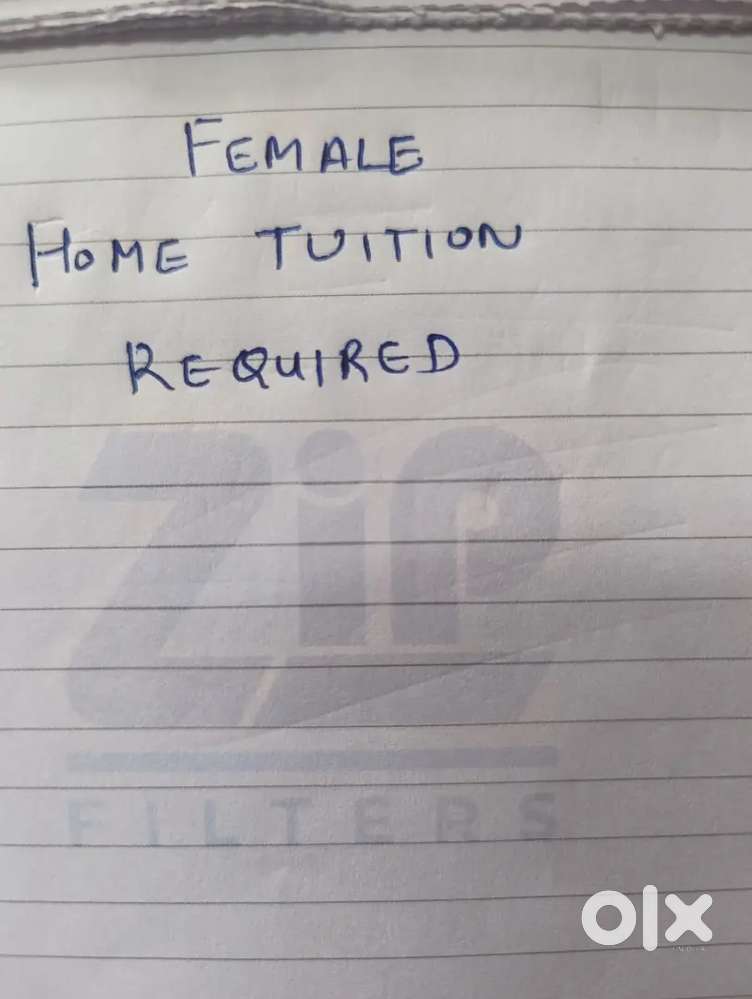 FEMALE
HOME TUITION
REQUIRED
ZiP
FILTERS
olx